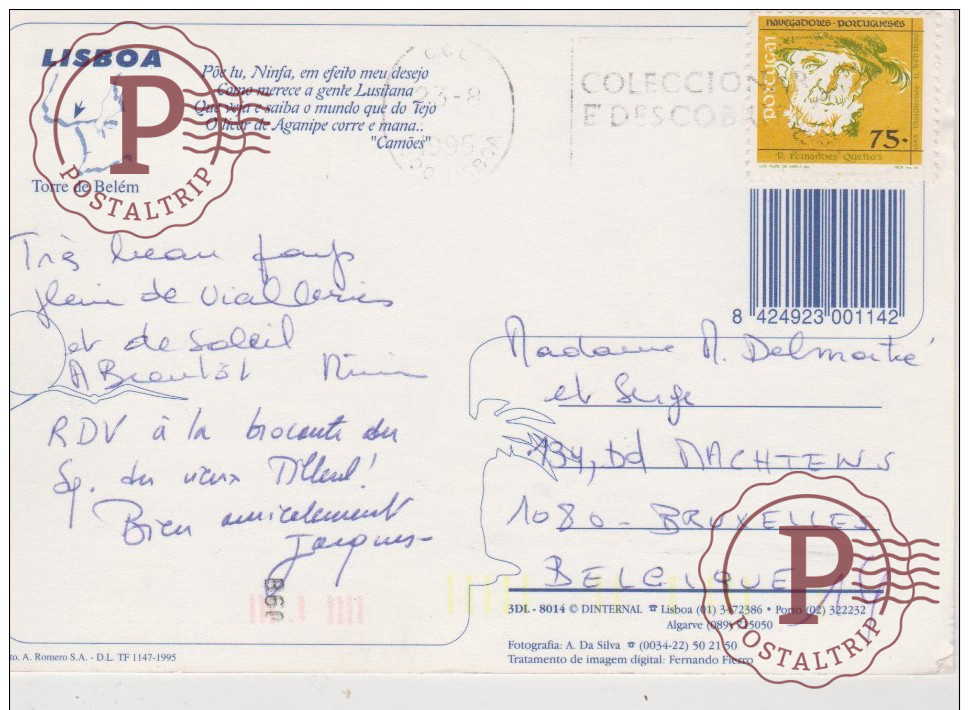 LISBOA
Põe tu, Ninfa, em efeito meu desejo
Como merece a gente Lusitana
Que veja e saiba o mundo que do Tejo
O licor de Aganipe corre e mana..
"Camões"
Torre de Belém
P
POSTALTRIP
23-8
1995
COLECCIONAR
E DESCOBR
NAVEGADORES - PORTUGUESES
portugal
75.
P. Fernandes Queiros
8 424923 001142
Très beau pays
plein de vialleries
et de soleil
A Bientôt Mimi
RDV à la brocante du
Sq. du vieux Tilleul!
Bien amicalement
Jacques
Madame M. Delmotte
et Serge
134, bd MACHTENS
1080 - BRUXELLES
BELGIQUE
B60
3DL - 8014 © DINTERNAL ☎ Lisboa (01) 3472386 • Porto (02) 322232
Algarve (089) 715050
Fotografia: A. Da Silva ☎ (0034-22) 50 21 50
Tratamento de imagem digital: Fernando Fierro
to. A. Romero S.A. - D.L. TF 1147-1995
P
POSTALTRIP